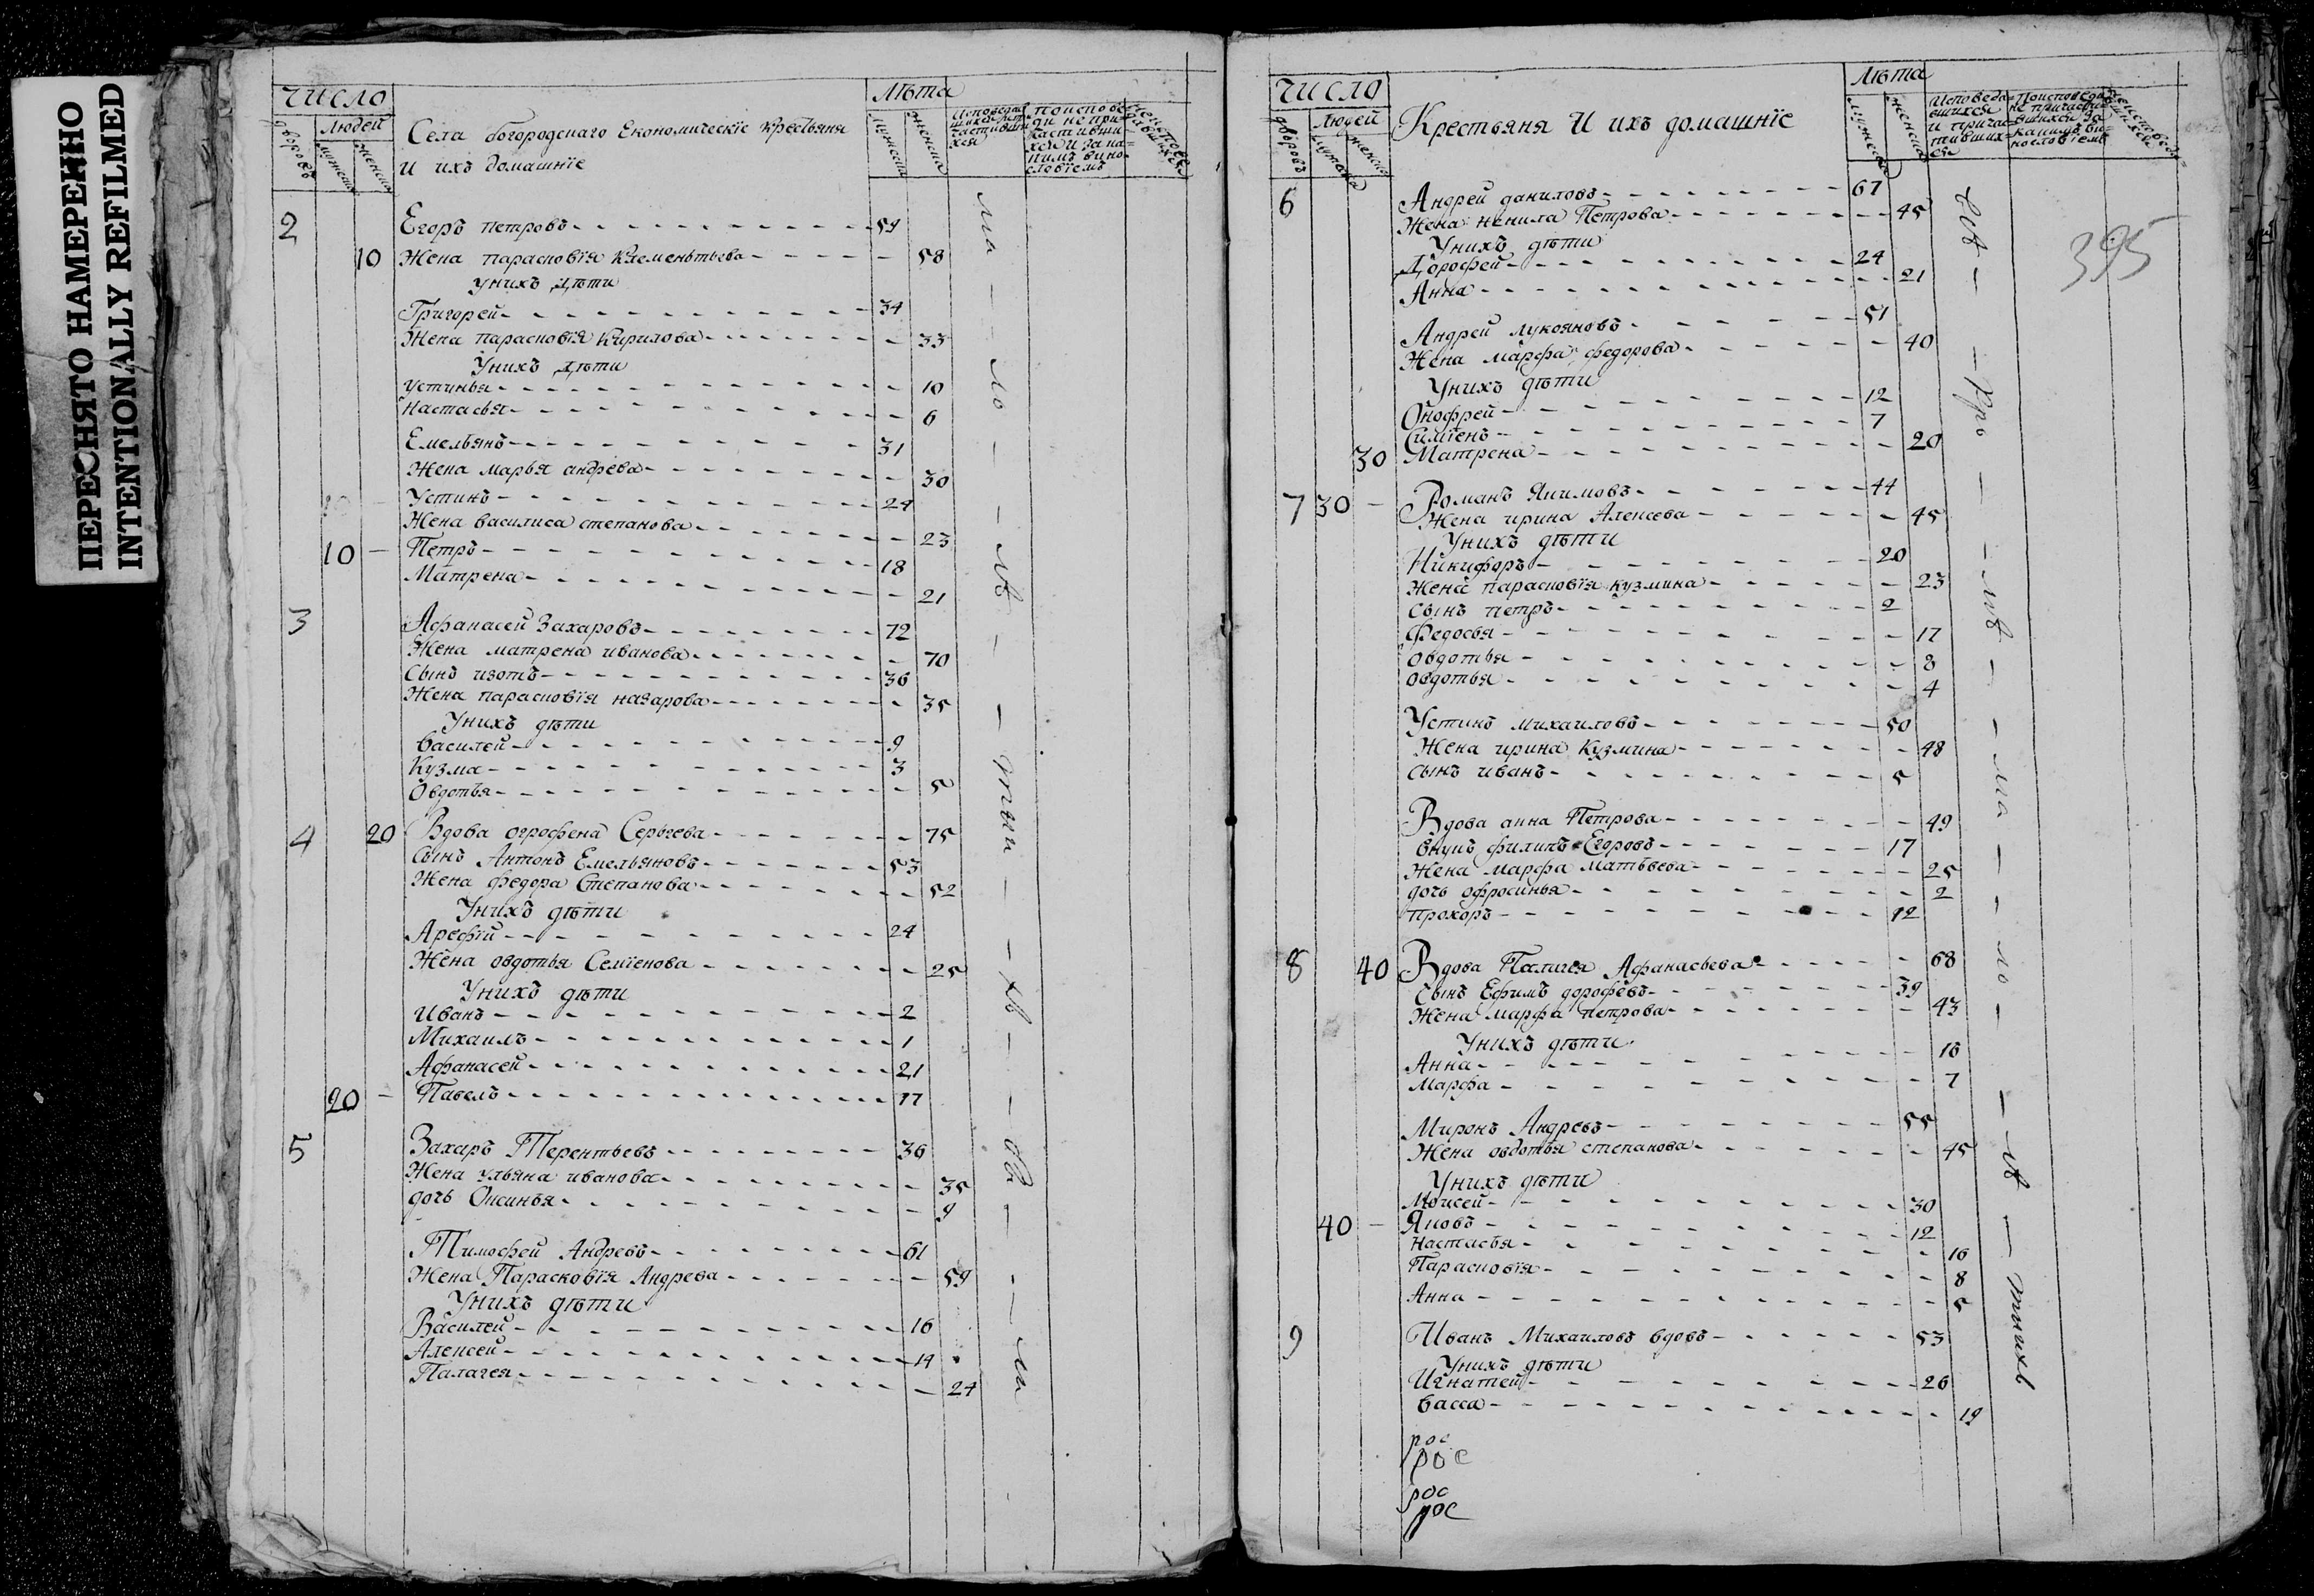 ПЕРЕСНЯТО НАМЕРЕННО
INTENTIONALLY REFILMED
число
людей
дворовъ
мужеска
женска
Села богородскаго Економическїе крестьяня
и ихъ домашнїе
лѣта
мужеска
женска
2
Егоръ петровъ 59
10 Жена парасковїя Клеменьтьева 58
У нихъ дѣти
Григорей 34
Жена парасковїя Кирилова 33
У нихъ дѣти
Устинья 10
Настасья 6
Емельянъ 31
Жена марья андрѣева 30
10 Устинъ 24
Жена василиса степанова 23
10 Петръ 18
Матрена 21
3 Афанасей Захаровъ 72
Жена матрена иванова 70
Сынъ изотъ 36
Жена парасковїя назарова 35
У нихъ дѣти
василей 9
Кузма 3
Овдотья 5
4 20 Вдова огрофена Сергеева 75
Сынъ Антонъ Емельяновъ 53
Жена федора Степанова 52
У нихъ дѣти
Арефїй 24
Жена овдотья Семїенова 25
У нихъ дѣти
Иванъ 2
Михаилъ 1
Афанасей 21
20 Павелъ 17
5 Захаръ Терентьевъ 36
Жена ульяна иванова 35
дочь Оксинья 9
Тимофей Андревъ 61
Жена Парасковїя Андрева 59
У нихъ дѣти
Василей 16
Алексей 14
Палагея 24
число
людей
дворовъ
мужеска
женска
Крестьяня И ихъ домашнїе
лѣта
мужеска
женска
395
6 Андрей даниловъ 67
Жена ненила Петрова 45
У нихъ дѣти
Дорофей 24
Анна 21
Андрей лукояновъ 51
Жена марфа федорова 40
У нихъ дѣти
Онофрей 12
Симїенъ 7
30 Матрена 20
7 30 Романъ Якимовъ 44
Жена ирина Алексева 45
У нихъ дѣти
Никифоръ 20
Жена парасковїя кузмина 23
Сынъ петръ 2
Федосья 17
овдотья 8
овдотья 4
Устинъ михаиловъ 50
Жена ирина Кузмина 48
Сынъ иванъ 5
Вдова анна Петрова 49
внукъ филипъ Егоровъ 17
Жена марфа матвѣева 25
дочь офросинья 2
прохоръ 12
8 40 Вдова Палагея Афанасьева 68
Сынъ Ефимъ дорофѣвъ 39
Жена марфа петрова 43
У нихъ дѣти
Анна 16
марфа 7
Миронъ Андревъ 55
Жена овдотья степанова 45
У нихъ дѣти
Моисей 30
40 Яковъ 12
Настасья 16
Парасковїя 8
Анна 5
9 Иванъ Михаиловъ вдовъ 53
У нихъ дѣти
Игнатей 26
васса 19
рос
рос
рос
рос